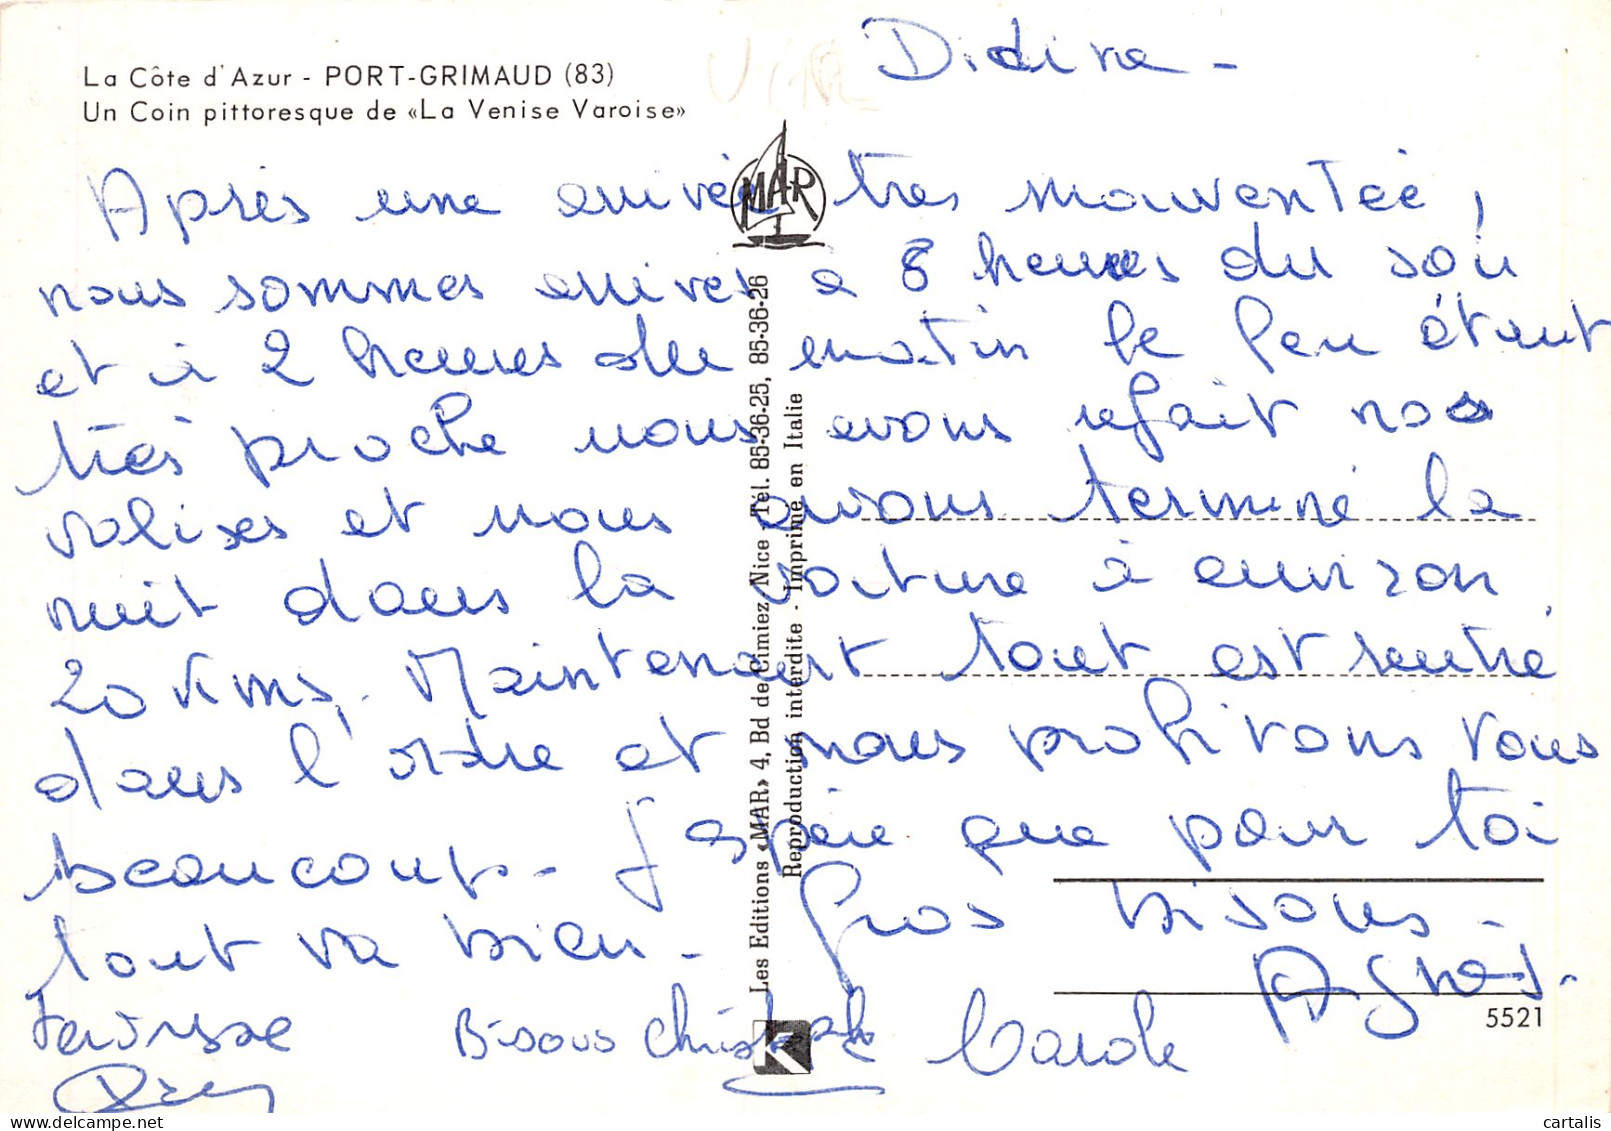 Didine -
La Côte d'Azur - PORT-GRIMAUD (83)
Un Coin pittoresque de «La Venise Varoise»
MAR
Après une arrivée très mouventée,
nous sommes arrivés à 8 heures du soir
et à 2 heures du matin le feu étant
très proche nous avons refait nos
valises et nous avons terminé la
nuit dans la voiture à environ
20 kms. Maintenant tout est rentré
dans l'ordre et nous profitons tous
beaucoup - J'espère que pour toi
tout va bien - Gros bisous -
Agnès.
Bisous Christophe Carole
Les Editions «MAR» 4, Bd de Cimiez, Nice Tél. 85-36-25, 85-36-26
Reproduction interdite - Imprimé en Italie
K
5521
cartalis